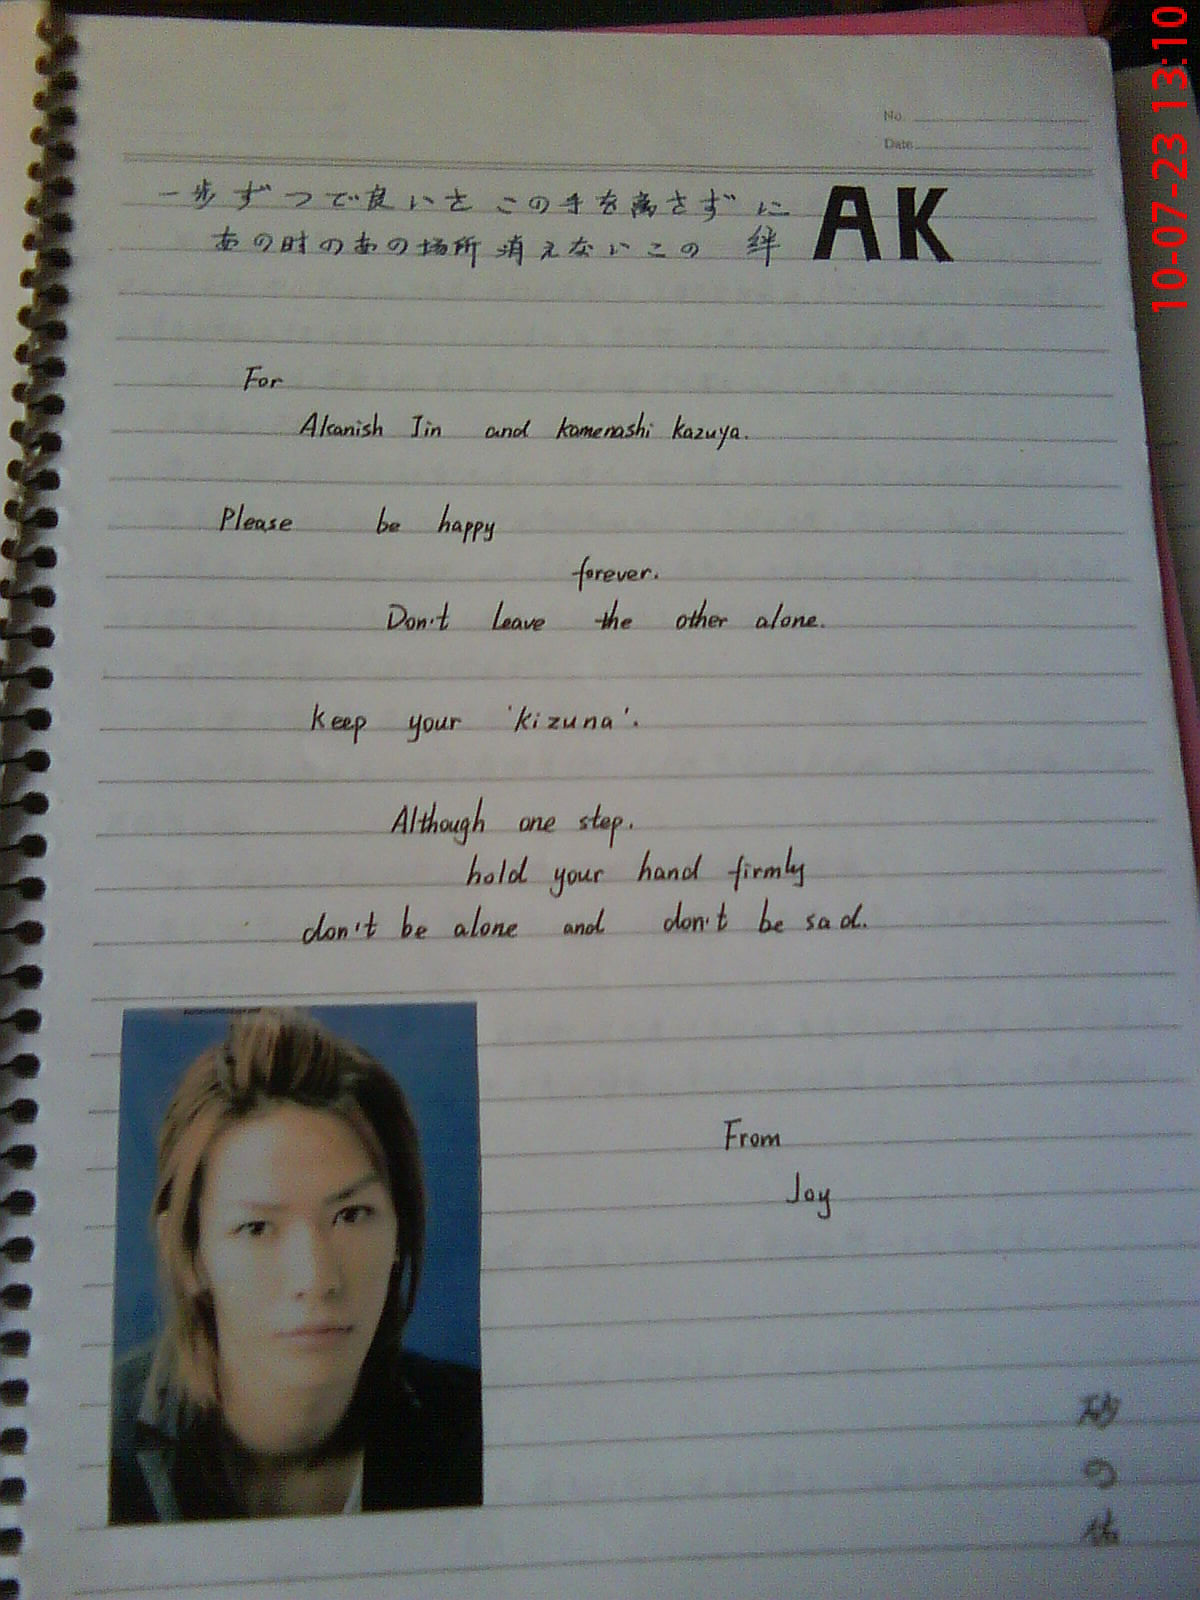 No.
Date
一歩ずつで良いさ この手を離さずに
あの時のあの場所 消えないこの 絆
AK
For
Akanish Jin and kamenashi kazuya.
Please be happy
forever.
Don't leave the other alone.
keep your 'kizuna'.
Although one step.
hold your hand firmly
don't be alone and don't be sad.
From
Joy
砂
の
10-07-23 13:10